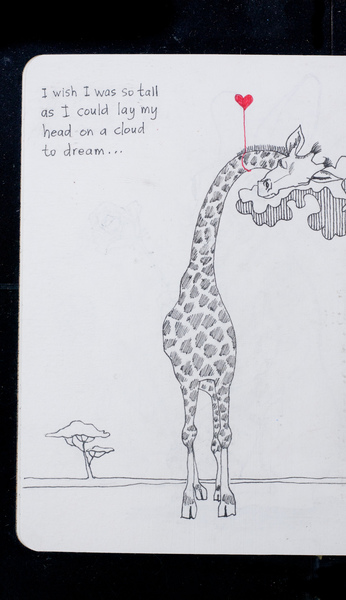 I wish I was so tall
as I could lay my
head on a cloud
to dream...